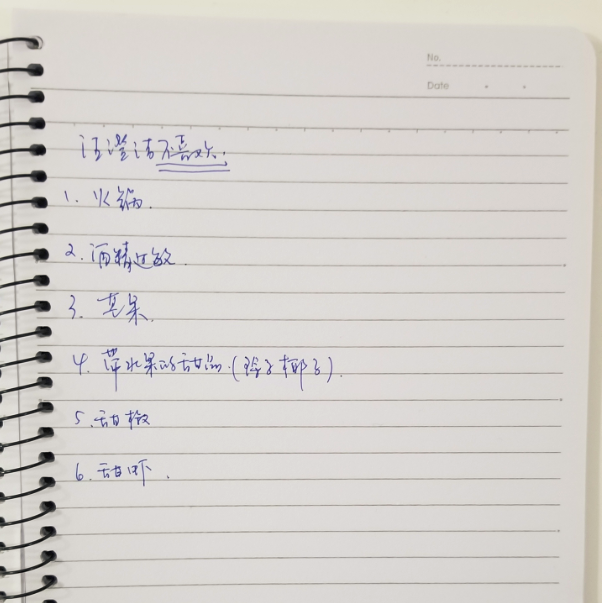 No.
Date
汪澄清不喜欢:
1. 火锅.
2. 酒精过敏.
3. 芒果.
4. 带水果的甜品.(除了椰子).
5. 甜椒
6. 甜虾.